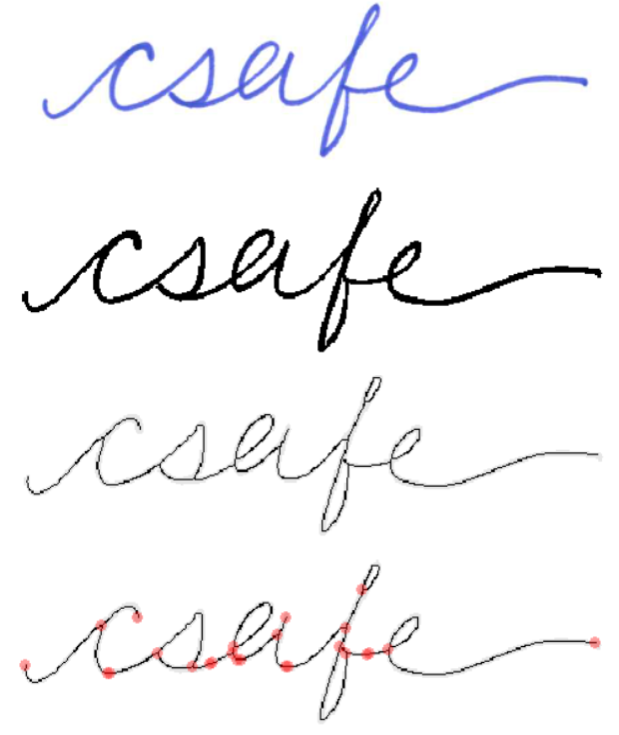 csafe
csafe
csafe
csafe